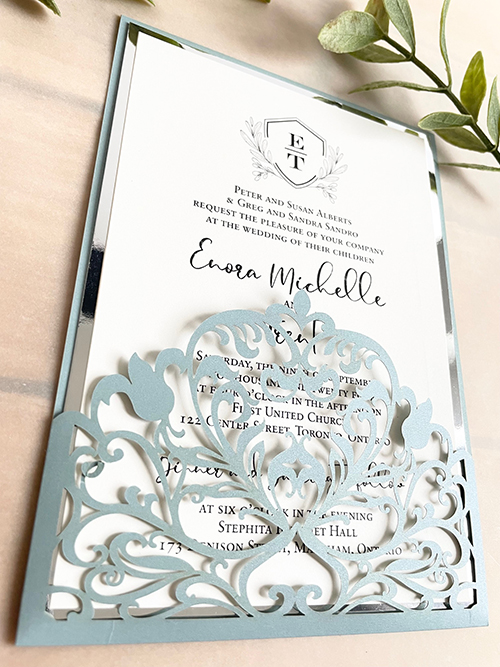 E
T
PETER AND SUSAN ALBERTS
& GREG AND SANDRA SANDRO
REQUEST THE PLEASURE OF YOUR COMPANY
AT THE WEDDING OF THEIR CHILDREN
Enora Michelle
AND
SATURDAY, THE
AT FOUR O'CLOCK IN THE AFTERNOON
FIRST UNITED CHURCH
122 CENTER STREET, TORONTO, ONTARIO
Dinner
AT SIX O'CLOCK IN THE EVENING
HALL
173 STREET, MARKHAM, ONTARIO